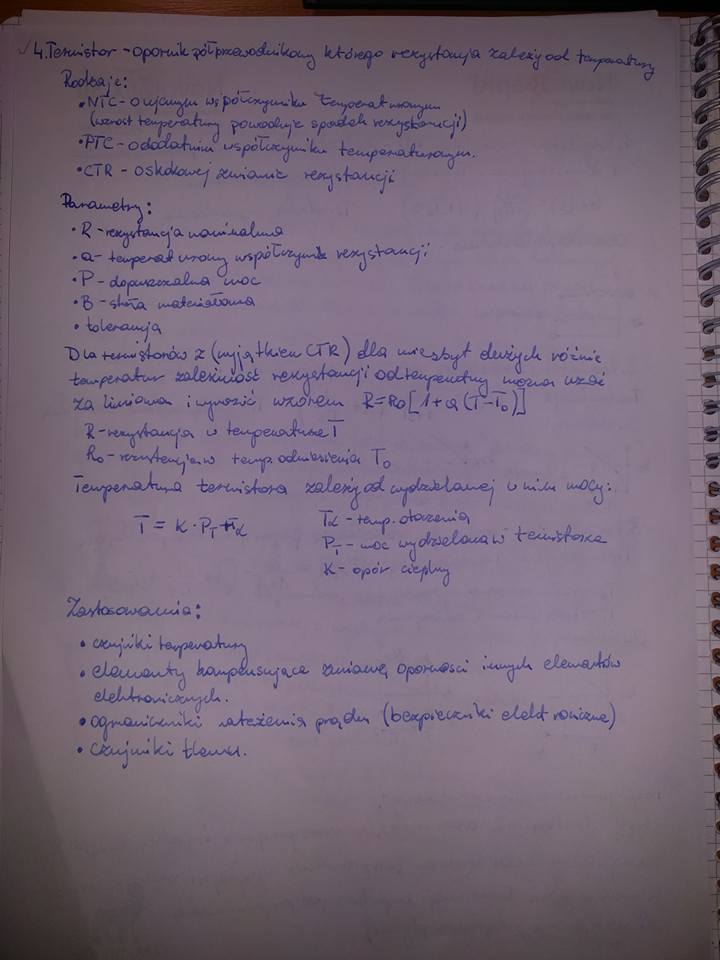 4. Termistor - opornik półprzewodnikowy którego rezystancja zależy od temperatury
Rodzaje:
• NTC - o ujemnym współczynniku temperaturowym
(wzrost temperatury powoduje spadek rezystancji)
• PTC - o dodatnim współczynniku temperaturowym.
• CTR - o skokowej zmianie rezystancji
Parametry:
• R - rezystancja nominalna
• a - temperaturowy współczynnik rezystancji
• P - dopuszczalna moc
• B - stała materiałowa
• tolerancja
Dla termistorów z (wyjątkiem CTR) dla niezbyt dużych różnic
temperatur zależność rezystancji od temperatury można uznać
za liniową i wyrazić wzorem R=R0[1+a(T-T0)]
R - rezystancja w temperaturze T
R0 - rezystancja w temp. odniesienia T0
Temperatura termistora zależy od wydzielanej w nim mocy:
T = K · PT + Tα
Tα - temp. otoczenia
PT - moc wydzielana w termistorze
K - opór cieplny
Zastosowania:
• czujniki temperatury
• elementy kompensujące zmianę oporności innych elementów
elektronicznych.
• ograniczniki natężenia prądu (bezpieczniki elektroniczne)
• czujniki tlenu.